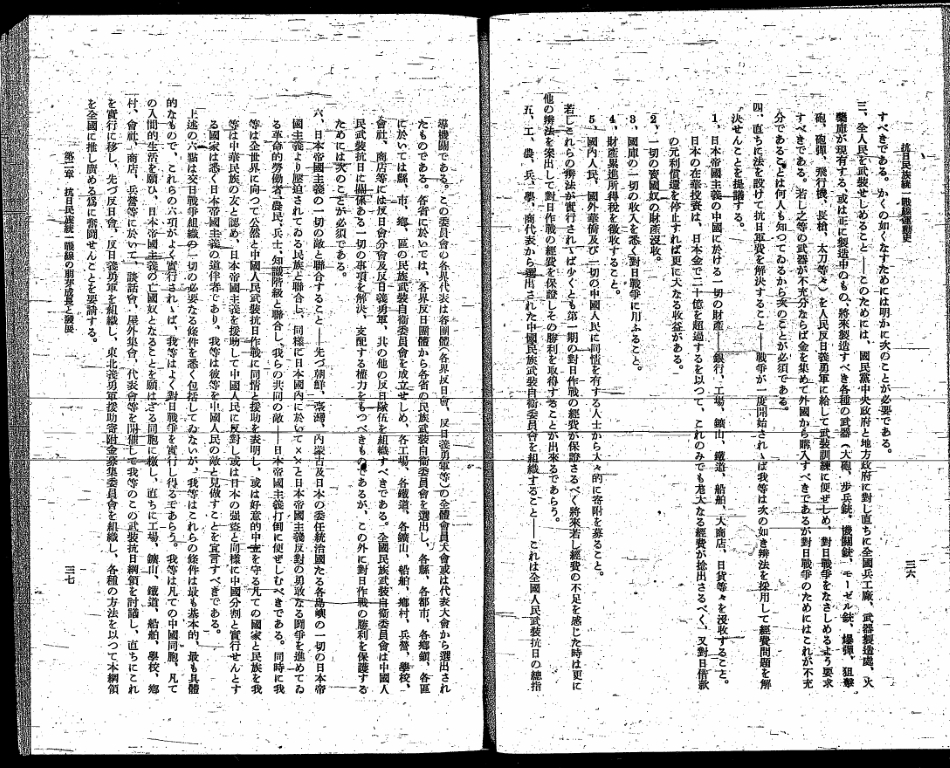 抗日民族統一戰線運動史
すべきである。かくの如くなすためには明かに次のことが必要である。
三、全人民を武裝せしめること――このためには、國民黨中央政府と地方政府に對し直ちに全國兵工廠、武器製造處、火
藥庫が現有する、或は正に製造中のもの、將來製造すべき各種の武器(大砲、步兵銃、機關銃、モーゼル銃、爆彈、狙擊
砲、砲彈、飛行機、長槍、太刀等々)を人民反日義勇軍に給して武裝訓練に便ぜしめ、對日戰爭をなさしめるよう要求
すべきである。若し之等の武器が不充分ならば金を集めて外國から購入すべきであるが對日戰爭のためにはこれが不充
分であることは何人も知つてゐるから次のことが必須である。
四、直ちに法を設けて抗日軍費を解決すること――戰爭が一度開始されゝば我等は次の如き辨法を採用して經費問題を解
決せんことを提議する。
1、日本帝國主義の中國に於ける一切の財產――銀行、工場、鑛山、鐵道、船舶、大商店、日貨等々を沒收すること。
日本の在華投資は、日本金で二十億を超過するを以つて、これのみでも厖大なる經費が捻出さるべく、又對日借款
の元利償還を停止すれば更に大なる收益がある。
2、一切の賣國奴の財產沒收。
3、國庫の一切の收入を悉く對日戰爭に用ふること。
4、財產累進所得稅を徵收すること。
5、國內人民、國外華僑及び一切の中國人民に同情を有する人士から大々的に寄附を募ること。
若しこれらの辨法が實行されゝば少くとも第一期の對日作戰の經費が保證さるべく將來若し經費の不足を感じた時は更に
他の辨法を案出して對日作戰の經費を保證しその勝利を取得することが出來るであらう。
五、工、農、兵、學、商代表から選出された中國民族武裝自衞委員會を組織すること――これは全國人民武裝抗日の總指
三六
導機關である。この委員會の各界代表は各團體(各界反日會、反日義勇軍等)の全體會員大會或は代表大會から選出され
たものである。各省に於いては、各界反日團體から各省の民族武裝自衞委員會を選出し、各縣、各都市、各鄕鎭、各區
に於いては縣、市、鄕、區の民族武裝自衞委員會を成立せしめ、各工場、各鐵道、各鑛山、船舶、鄕村、兵營、學校、
會社、商店等には反日會分會及反日義勇軍、其の他の反日隊伍を組織すべきである。全國民族武裝自衞委員會は中國人
民武裝抗日に關係ある一切の事項を解決、支配する權力をもつべきものであるが、この外に對日作戰の勝利を保護する
ためには次のことが必須である。
六、日本帝國主義の一切の敵と聯合すること――先づ朝鮮、臺灣、內蒙古及日本の委任統治國たる各島嶼の一切の日本帝
國主義より壓迫されてゐる民族と聯合し、同樣に日本國內に於いて××と日本帝國主義反對の勇敢なる鬪爭を進めてゐ
る革命的勞働者、農民、兵士、知識階級と聯合し、我らの共同の敵――日本帝國主義打倒に便ぜしむべきである。同時に我
等は全世界に向つて公然と中國人民武裝抗日作戰に同情と援助を表明し、或は好意的中立を守る凡ての國家と民族を我
等は中華民族の友と認め、日本帝國主義を援助して中國人民に反對し或は日本の強盜と同樣に中國分割と實行せんとす
る國家は悉く日本帝國主義の追律者であり、我等は彼等を中國人民の敵と見做すことを宣言すべきである。
上述の六點は又日戰爭組織の一切の必要なる條件を悉く包括してゐないが、我等はこれらの條件は最も基本的、最も具體
的なもので、これらの六項がよく實行されゝば、我等はよく對日戰爭を實行し得るであらう。我等は凡ての中國同胞、凡て
の人間的生活を願ひ、日本帝國主義の亡國奴となることを願はざる同胞に檄し、直ちに工場、鑛山、鐵道、船舶、學校、鄕
村、會社、商店、兵營等に於いて、談話會、屋外集會、代表會等を開催して我等のこの武裝抗日綱領を討議し、直ちにこれ
を實行に移し、先づ反日會、反日義勇軍を組織し、東北義勇軍援助寄附金募集委員會を組織し、各種の方法を以つて本綱領
を全國に推し廣める爲に奮鬪せんことを要請する。
第二章 抗日民族統一戰線の萠芽成長と發展
三七